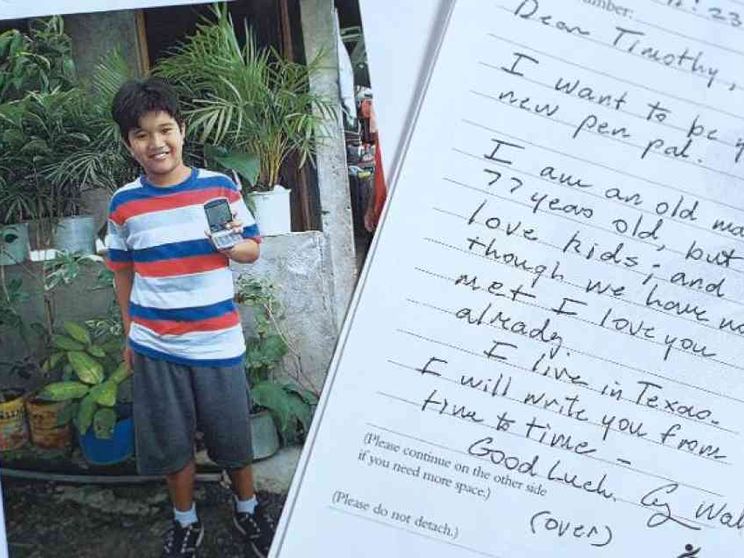 umber:
Dear Timothy,
I want to be
new pen pal.
I am an old
77 years old, but
love kids; and
though we have
met I love you
already.
I live in Texas.
I will write you from
time to time -
Good Luck.
(Please continue on the other side
if you need more space.)
(over)
(Please do not detach.)